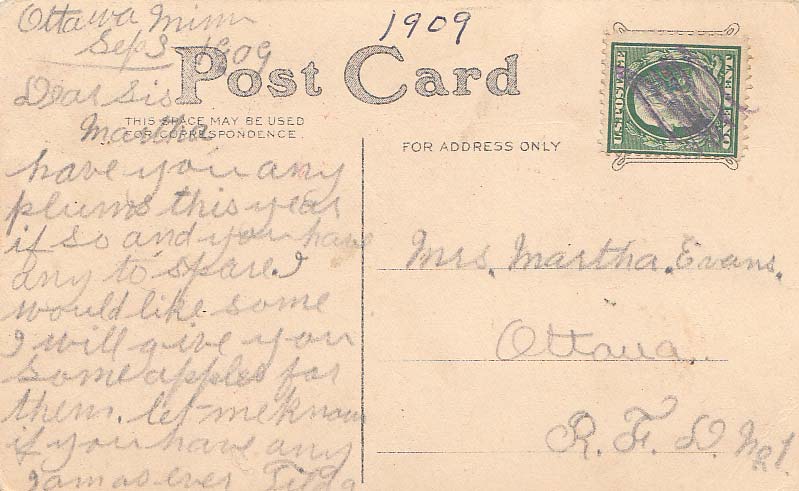 Ottawa Minn
Sep 3 1909
1909
Post Card
Dear Sis
THIS SPACE MAY BE USED
FOR CORRESPONDENCE.
Martha
have you any
plums this year
if so and you have
any to spare. I
would like some
I will give you
some apples for
them. let me know
if you have any
I am as ever Tilda
FOR ADDRESS ONLY
U.S. POSTAGE
ONE CENT
Mrs. Martha Evans.
Ottaua
R. F. D. No 1.